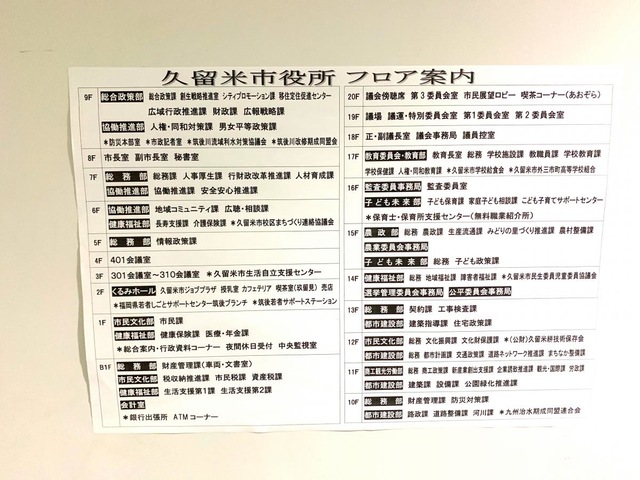 久留米市役所 フロア案内
9F 総合政策部 総合政策課 創生戦略推進室 シティプロモーション課 移住定住促進センター
広域行政課 財政課 広報戦略課
協働推進部 人権・同和対策課 男女平等政策課
*防災本部室 *市政記者室 *筑後川流域利水対策協議会 *筑後川改修期成同盟会
8F 市長室 副市長室 秘書室
7F 総務部 総務課 人事厚生課 行財政改革推進課 人材育成課
協働推進部 安全安心推進課
6F 協働推進部 地域コミュニティ課 広聴・相談課
健康福祉部 長寿支援課 介護保険課 *久留米市校区まちづくり連絡協議会
5F 総務部 情報政策課
4F 401会議室
3F 301会議室～310会議室 *久留米市生活自立支援センター
2F くるみホール 久留米市ジョブプラザ 授乳室 カフェテリア 喫茶室(玖留見) 売店
*福岡県若者しごとサポートセンター筑後ブランチ *筑後若者サポートステーション
1F 市民文化部 市民課
健康福祉部 健康保険課 医療・年金課
*総合案内・行政資料コーナー 夜間休日受付 中央監視室
B1F 総務部 財産管理課(車両・文書室)
市民文化部 税収納推進課 市民税課 資産税課
健康福祉部 生活支援第1課 生活支援第2課
会計室
*銀行出張所 ATMコーナー
20F 議会傍聴席 第3委員会室 市民展望ロビー 喫茶コーナー(あおぞら)
19F 議場 議運・特別委員会室 第1委員会室 第2委員会室
18F 正・副議長室 議会事務局 議員控室
17F 教育委員会・教育部 教育長室 総務 学校施設課 教職員課 学校教育課
学校保健課 人権・同和教育課 *久留米市学校給食会 *久留米市外三市町高等学校組合
16F 監査委員事務局 監査委員室
子ども未来部 子ども保育課 家庭子ども相談課 こども子育てサポートセンター
*保育士・保育所支援センター(無料職業紹介所)
15F 農政部 総務 農政課 生産流通課 みどりの里づくり推進課 農村整備課
農業委員会事務局
子ども未来部 総務 子ども政策課
14F 健康福祉部 総務 地域福祉課 障害者福祉課 *久留米市民生委員児童委員協議会
選挙管理委員会事務局 公平委員会事務局
13F 総務部 契約課 工事検査課
都市建設部 建築指導課 住宅政策課
12F 市民文化部 総務 文化振興課 文化財保護課 *(公財)久留米絣技術保存会
都市建設部 総務 都市計画課 交通政策課 道路ネットワーク推進課 まちなか整備課
11F 商工観光労働部 総務 商工政策課 新産業創出支援課 企業誘致推進課 観光・国際課 労政課
都市建設部 建築課 設備課 公園緑化推進課
10F 総務部 財産管理課 防災対策課
都市建設部 路政課 道路整備課 河川課 *九州治水期成同盟連合会